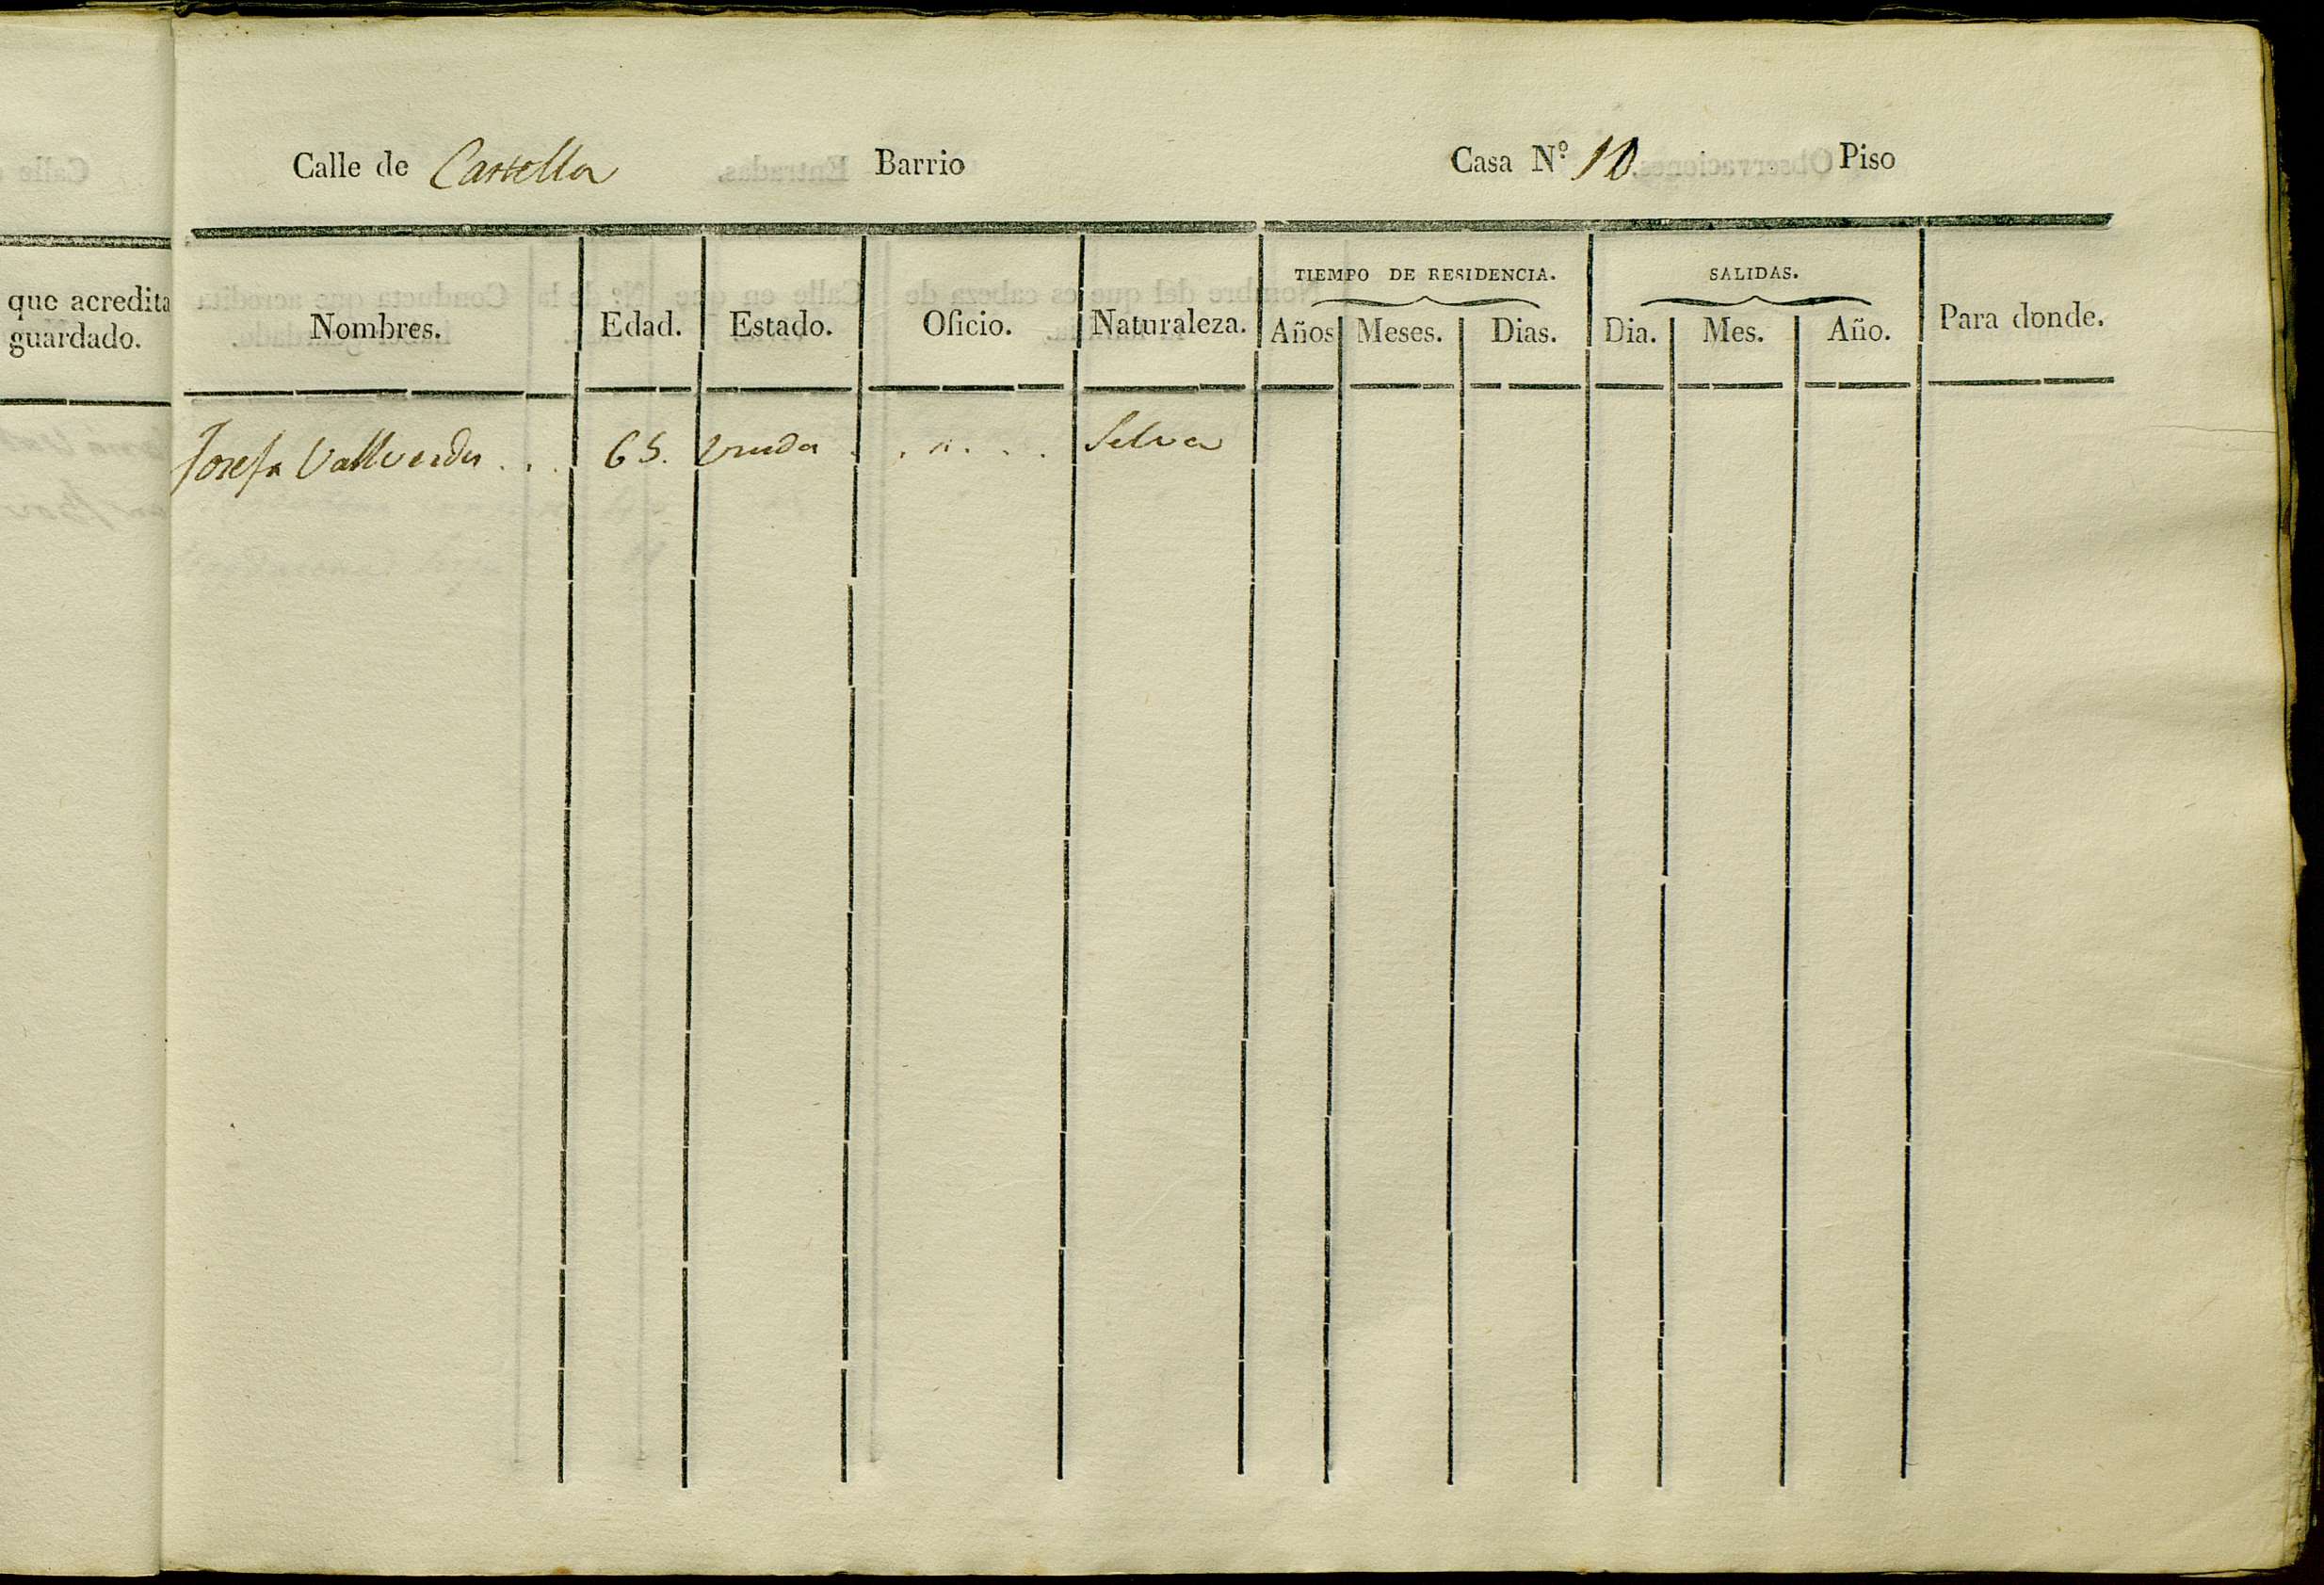 que acredita
guardado.
Calle de Castella Barrio Casa N.º 10. Piso
TIEMPO DE RESIDENCIA. SALIDAS.
Nombres. Edad. Estado. Oficio. Naturaleza. Años Meses. Dias. Dia. Mes. Año. Para donde.
Josefa Vallverdu . . . 65. Viuda . . " . . . Selva